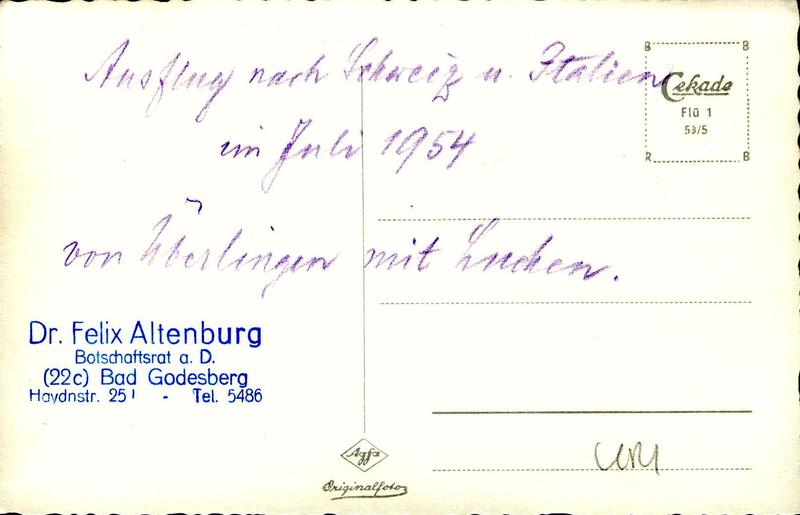 Ausflug nach Schweiz u. Italien
im Juli 1954
von Überlingen mit Luchen.
B B
Cekade
Flü 1
53/5
R B
Dr. Felix Altenburg
Botschaftsrat a. D.
(22c) Bad Godesberg
Haydnstr. 25 I - Tel. 5486
Agfa
Originalfoto